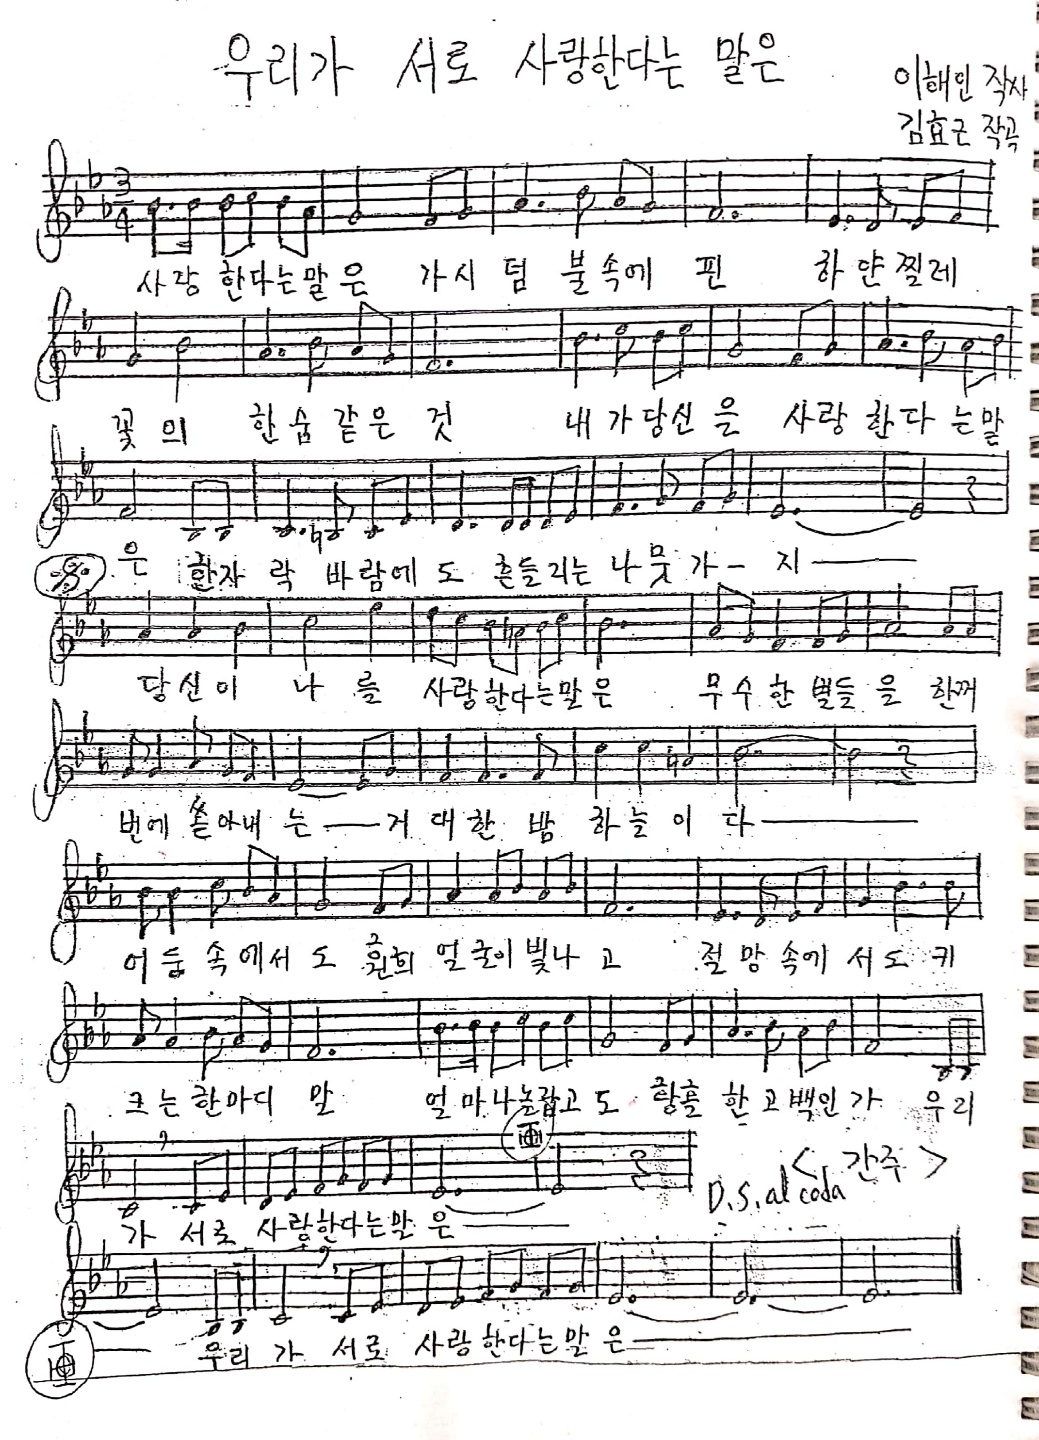 우리가 서로 사랑한다는 말은
이해인 작사
김효근 작곡
3
4
사랑 한다는말 은 가시 덤 불속에 핀 하얀찔레
꽃의 한숨같은 것 내가당신을 사랑 한다 는말
은 한자 락 바람에도 흔들리는 나뭇가 - 지
당신이 나 를 사랑한다는말은 무수한별들을 한꺼
번에 쏟아내 는 거대한 밤 하늘이 다
어둠 속에서도 훤히 얼굴이빛나고 절망속에 서도 키
크는한마디 말 얼마나놀랍고도 황홀 한고백인가 우리
가 서로 사랑한다는말 은
<간주>
D.S. al coda
우리 가 서로 사랑한다는말 은